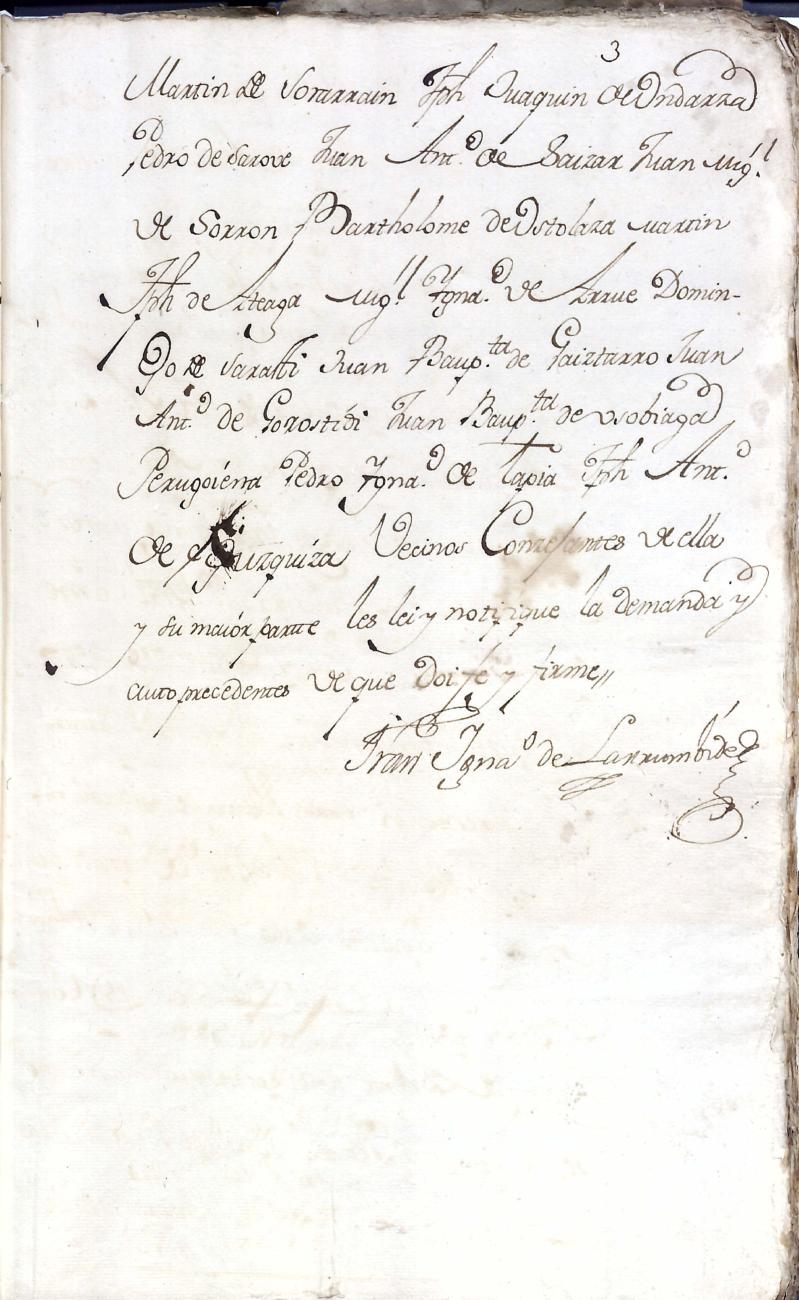 3
Martin de Sorarrain Jph Juaquin de Undarza
Pedro de Sarove Juan Ant.º de Saizar Juan Mig.l
de Sorron Bartholome de Ostolaza Martin
Jph de Arteaga Mig.l Ygna.º de Arrue Domin-
go de Saratti Juan Baup.ta de Gaiztarro Juan
Ant.º de Gorostidi Juan Baup.ta de Usobiaga
Perugoiena Pedro Ygna.º de Tapia Jph Ant.º
de Eguzquiza Vecinos Conzesantes de ella
y su maior parte les lei y notifique la demanda y
auto precedentes de que Doi fe y firme
Fran.co Ygna.º de Larrumbide